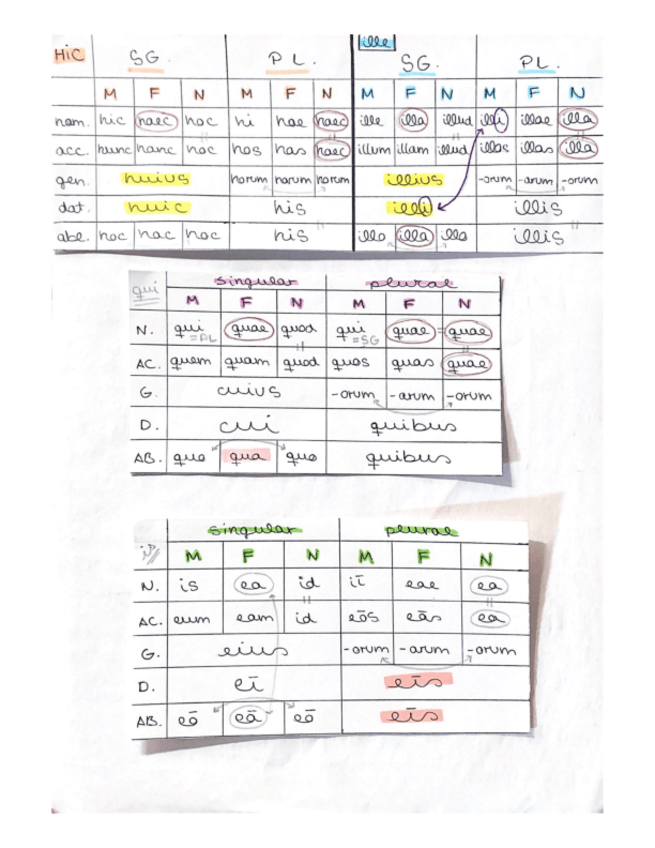 Hic SG. PL. ille SG. PL.
M F N M F N M F N M F N
nom. hic haec hoc hi hae haec ille illa illud illi illae illa
acc. hunc hanc hoc hos has haec illum illam illud illos illas illa
gen. huius horum harum horum illius -orum -arum -orum
dat. huic his illi illis
abl. hoc hac hoc his illo illa illo illis
qui singular plural
M F N M F N
N. qui =PL quae quod qui =SG quae = quae
AC. quem quam quod quos quas quae
G. cuius -orum -arum -orum
D. cui quibus
AB. quo qua quo quibus
is singular plural
M F N M F N
N. is ea id iī eae ea
AC. eum eam id eōs eās ea
G. eius -orum -arum -orum
D. eī eīs
AB. eō eā eō eīs